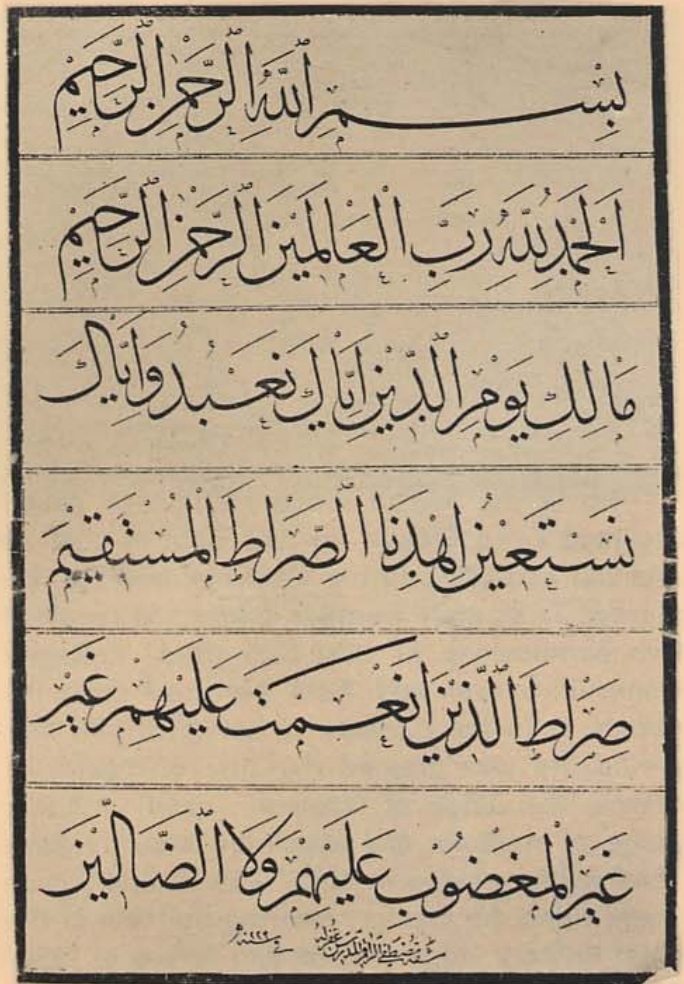 بِسْمِ اللّٰهِ الرَّحْمٰنِ الرَّحِيْمِ
اَلْحَمْدُ لِلّٰهِ رَبِّ الْعَالَمِيْنَ الرَّحْمٰنِ الرَّحِيْمِ
مَالِكِ يَوْمِ الدِّيْنِ اِيَّاكَ نَعْبُدُ وَاِيَّاكَ
نَسْتَعِيْنُ اِهْدِنَا الصِّرَاطَ الْمُسْتَقِيْمَ
صِرَاطَ الَّذِيْنَ اَنْعَمْتَ عَلَيْهِمْ غَيْرِ
غَيْرِ الْمَغْضُوْبِ عَلَيْهِمْ وَلَا الضَّالِّيْنَ
مشقه مصطفى الراقم المدرس غفر له